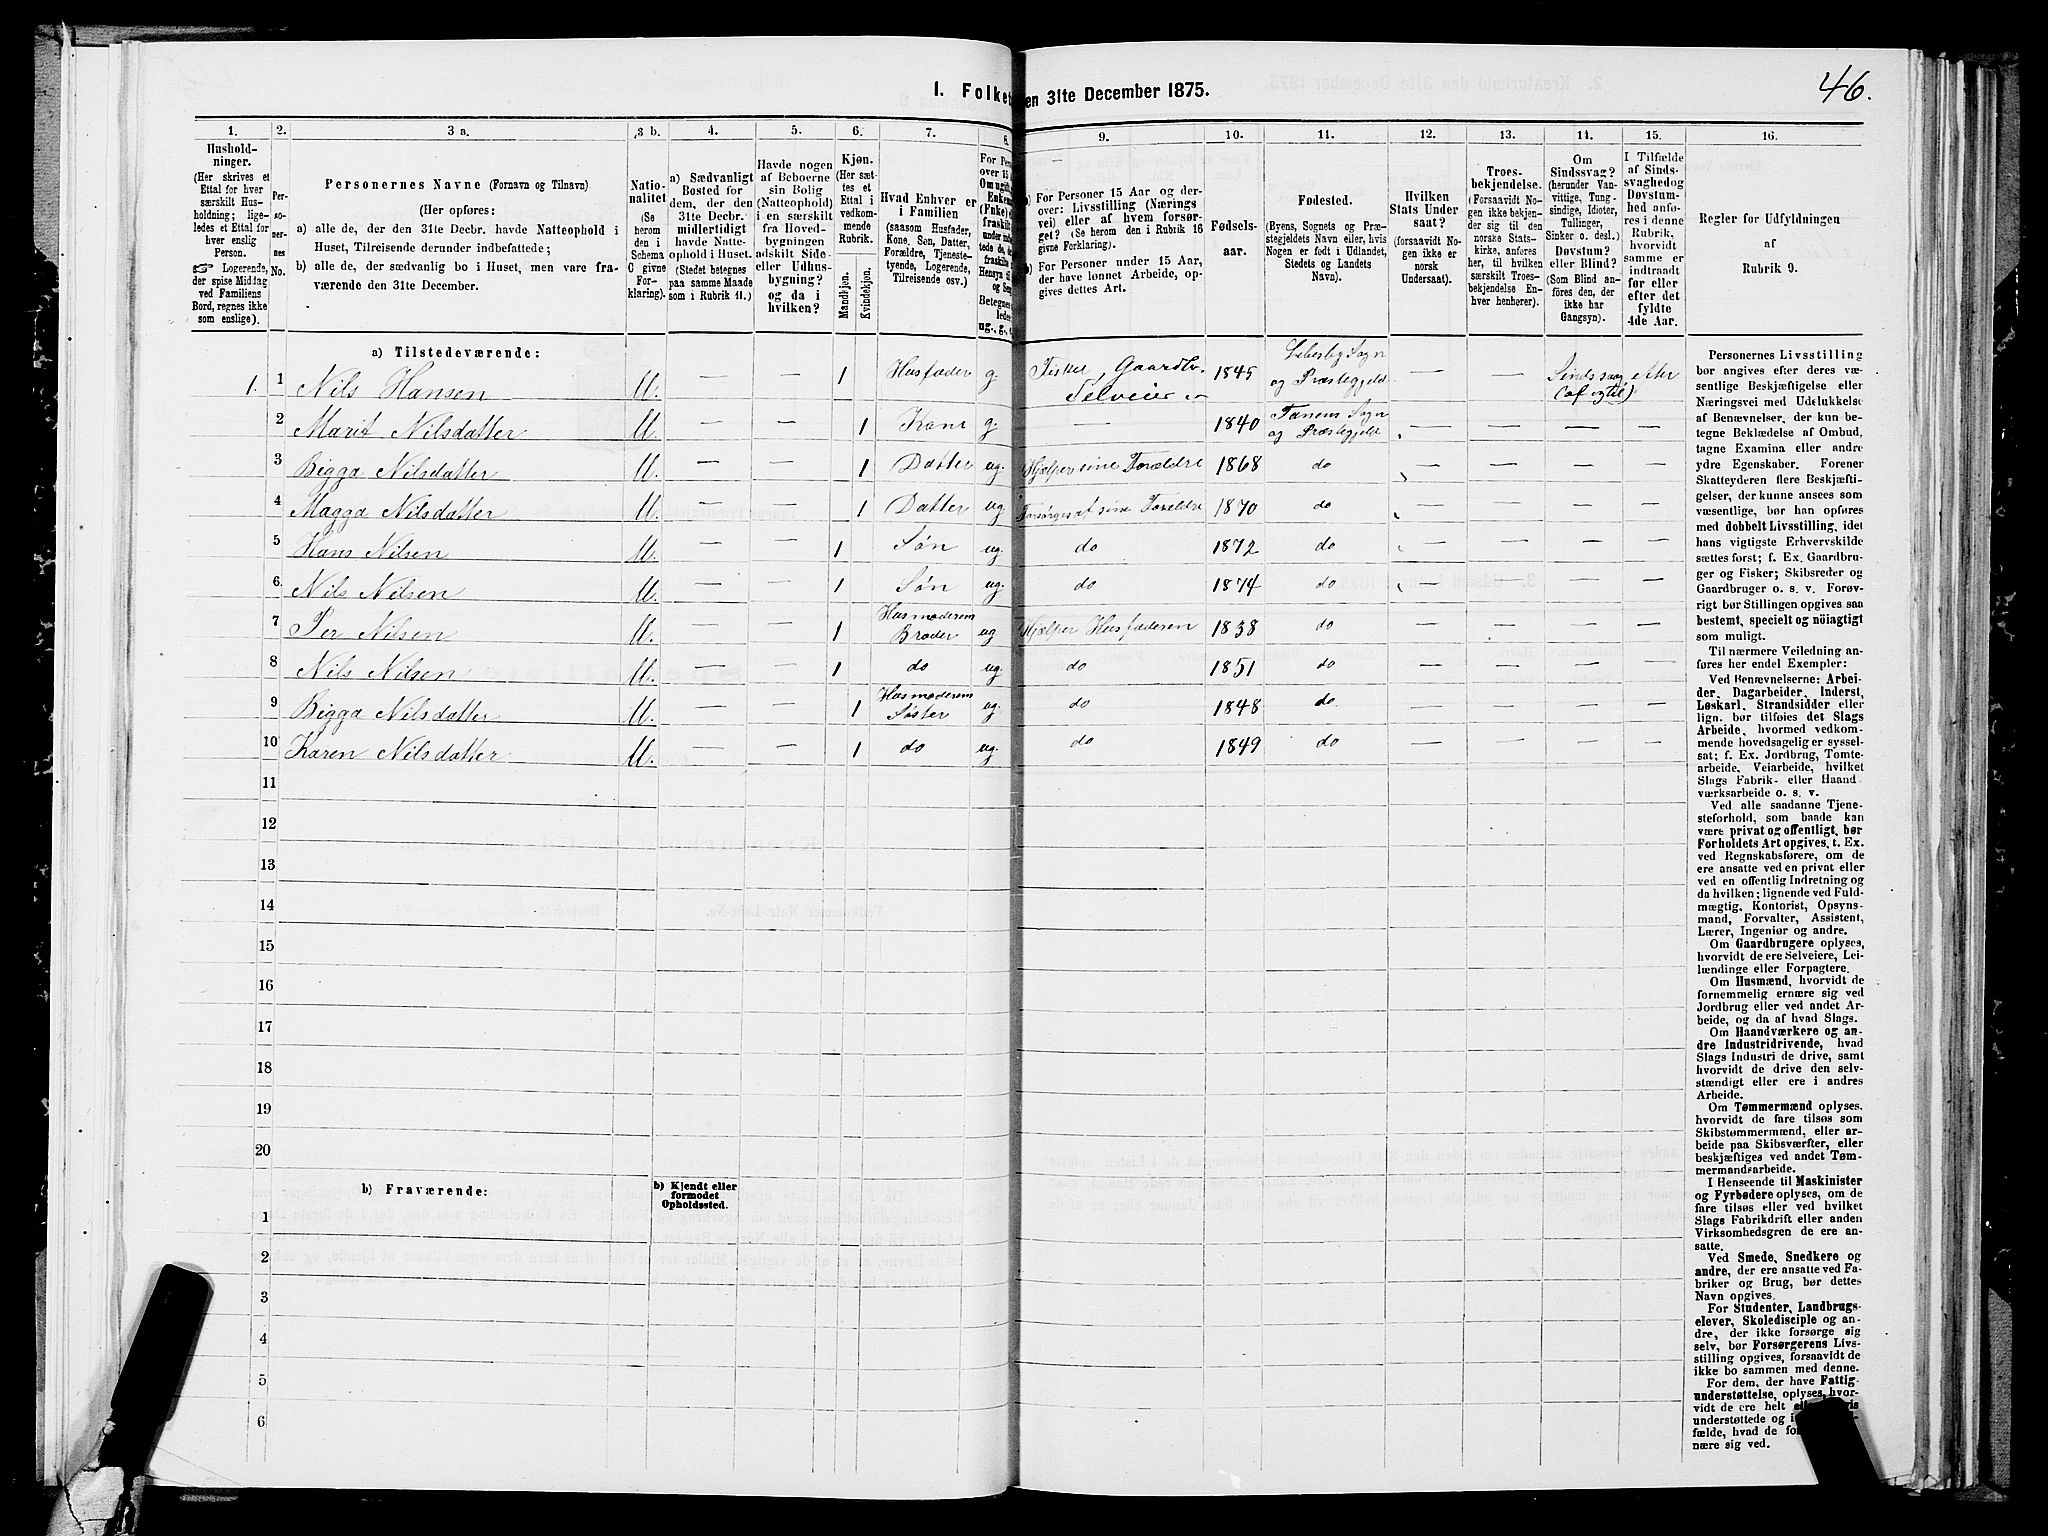 46.
I. Folket
en 31te December 1875.
1.
Hushold-
ninger.
(Her skrives et
Ettal for hver
særskilt Hus-
holdning; lige-
ledes et Ettal for
hver enslig
Person.
☞ Logerende,
der spise Middag
ved Familiens
Bord, regnes ikke
som enslige).
2.
Per-
so-
ner-
nes
No.
3 a.
Personernes Navne (Fornavn og Tilnavn)
(Her opføres:
a) alle de, der den 31te Decbr. havde Natteophold i
Huset, Tilreisende derunder indbefattede;
b) alle de, der sædvanlig bo i Huset, men vare fra-
værende den 31te December.
3 b.
Natio-
nalitet
(Se
herom
den i
Schema
C givne
For-
klaring).
4.
a) Sædvanligt
Bosted for
dem, der den
31te Decbr.
midlertidigt
havde Natte-
ophold i Huset.
(Stedet betegnes
paa samme Maade
som i Rubrik 11.)
5.
Havde nogen
af Beboerne
sin Bolig
(Natteophold)
i en særskilt
fra Hoved-
bygningen
adskilt Side-
eller Udhus-
bygning?
og da i
hvilken?
6.
Kjøn.
(Her sæt-
tes et
Ettal i
vedkom-
mende
Rubrik.
Mandkjøn.
Kvindekjøn.
7.
Hvad Enhver er
i Familien
(saasom Husfader,
Kone, Søn, Datter,
Forældre, Tjeneste-
tyende, Logerende,
Tilreisende osv.)
8.
For Per
over 15
Om ugift
Enkem
(Fnke)
fraskil
under
tede de,
fraskilt
Hensyn til
og Se
Betegne
ledes
ug., g.,
9.
a) For Personer 15 Aar og der-
over: Livsstilling (Nærings
vei) eller af hvem forsør-
get? (Se herom den i Rubrik 16
givne Forklaring).
b) For Personer under 15 Aar,
der have lønnet Arbeide, op-
gives dettes Art.
10.
Fødsels-
aar.
11.
Fødested.
(Byens, Sognets og Præ-
stegjeldets Navn eller, hvis
Nogen er født i Udlandet,
Stedets og Landets
Navn).
12.
Hvilken
Stats Under
saat?
(forsaavidt No-
gen ikke er
norsk
Undersaat).
13.
Troes-
bekjendelse.
(Forsaavidt No-
gen ikke bekjen-
der sig til den
norske Stats-
kirke, anføres
her, til hvilken
særskilt Troes-
bekjendelse En-
hver henhører).
14.
Om
Sindssvag?
(herunder Van-
vittige, Tung-
sindige, Idioter,
Tullinger,
Sinker o. desl.)
Døvstum?
eller Blind?
(Som Blind an-
føres den, der
ikke har
Gangsyn).
15.
I Tilfælde
af Sinds-
svaghed og
Døvstum-
hed anfø-
res i denne
Rubrik,
hvorvidt
samme er
indtraadt
før eller
efter det
fyldte
4de Aar.
16.
Regler for Udfyldningen
af
Rubrik 9.
a) Tilstedeværende:
1. 1 Nils Hansen M. — — 1 Husfader g. Fisker, Gaardbr. Selveier 1845 Lebesby Sogn og Præstegjeld — — Sindssvag (af og til) efter
2 Marit Nilsdatter M. — — 1 Kone g. — 1840 Tanens Sogn og Præstegjeld — — —
3 Bigga Nilsdatter M. — — 1 Datter ug. Hjælper sine Forældre 1868 do — — —
4 Magga Nilsdatter M. — — 1 Datter ug. Forsørges af sine Forældre 1870 do — — —
5 Hans Nilsen M. — — 1 Søn ug. do 1872 do — — —
6. Nils Nilsen M. — — 1 Søn ug. do 1874 do — — —
7 Per Nilsen M. — — 1 Husmoderens Broder ug Hjælper Husfaderen 1838 do — — — —
8 Nils Nilsen M. — — 1 do ug. do 1851 do — — — —
9 Bigga Nilsdatter M. — — 1 Husmoderens Søster ug. do 1848 do — — — —
10 Karen Nilsdatter M. — — 1 do ug. do 1849 do — — — —
11
12
13
14
15
16
17
18
19
20
b) Fraværende:
b) Kjendt eller
formodet
Opholdssted.
1
2
3
4
5
6
Personernes Livsstilling
bør angives efter deres væ-
sentlige Beskjæftigelse eller
Næringsvei med Udelukkelse
af Benævnelser, der kun be-
tegne Beklædelse af Ombud,
tagne Examina eller andre
ydre Egenskaber. Forener
Skatteyderen flere Beskjæfti-
gelser, der kunne ansees som
væsentlige, bør han opføres
med dobbelt Livsstilling, idet
hans vigtigste Erhvervskilde
sættes først; f. Ex. Gaardbru-
ger og Fisker; Skibsreder og
Gaardbruger o. s. v. Forøv-
rigt bør Stillingen opgives saa
bestemt, specielt og nöiagtigt
som muligt.
Til nærmere Veiledning an-
føres her endel Exempler:
Ved Benævnelserne: Arbei-
der, Dagarbeider, Inderst,
Løskarl, Strandsidder eller
lign. bør tilføies det Slags
Arbeide, hvormed vedkom-
mende hovedsagelig er syssel-
sat; f. Ex. Jordbrug, Tomte-
arbeide, Veiarbeide, hvilket
Slags Fabrik- eller Haand-
værksarbeide o. s. v.
Ved alle saadanne Tjene-
steforhold, som baade kan
være privat og offentligt, bør
Forholdets Art opgives, t. Ex.
ved Regnskabsførere, om de
ere ansatte ved en privat eller
ved en offentlig Indretning og
da hvilken; lignende ved Fuld-
mægtig, Kontorist, Opsyns-
mand, Forvalter, Assistent,
Lærer, Ingeniør og andre.
Om Gaardbrugere oplyses,
hvorvidt de ere Selveiere, Lei-
lændinge eller Forpagtere.
Om Husmænd, hvorvidt de
fornemmelig ernære sig ved
Jordbrug eller ved andet Ar-
beide, og da af hvad Slags.
Om Haandværkere og an-
dre Industridrivende, hvad
Slags Industri de drive, samt
hvorvidt de drive den selv-
stændigt eller ere i andres
Arbeide.
Om Tømmermænd oplyses,
hvorvidt de fare tilsøs som
Skibstømmermænd, eller ar-
beide paa Skibsværfter, eller
beskjæftiges ved andet Tøm-
mermandsarbeide.
I Henseende til Maskinister
og Fyrbødere oplyses, om de
fare tilsøs eller ved hvilket
Slags Fabrikdrift eller anden
Virksomhedsgren de ere an-
satte.
Ved Smede, Snedkere og
andre, der ere ansatte ved Fa-
briker og Brug, bør dettes
Navn opgives.
For Studenter, Landbrugs-
elever, Skoledisciple og an-
dre, der ikke forsørge sig
selv, bør Forsørgerens Livs-
stilling opgives, forsaavidt de
ikke bo sammen med denne.
For dem, der have Fattig-
understøttelse, oplyses, hvor-
vidt de ere helt el
understøttede og i
fælde, hvad de for
nære sig ved.